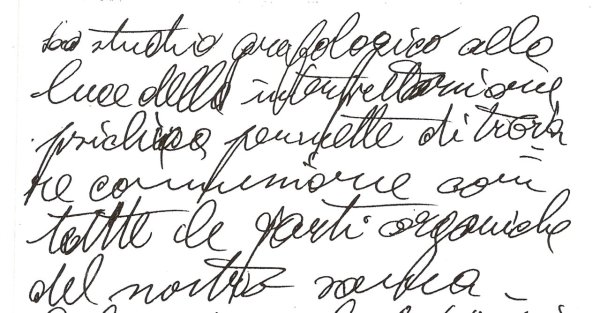 Lo studio grafologico alla
luce della interpretazione
psichica permette di trova
re comunione con
tutte le parti organiche
del nostro